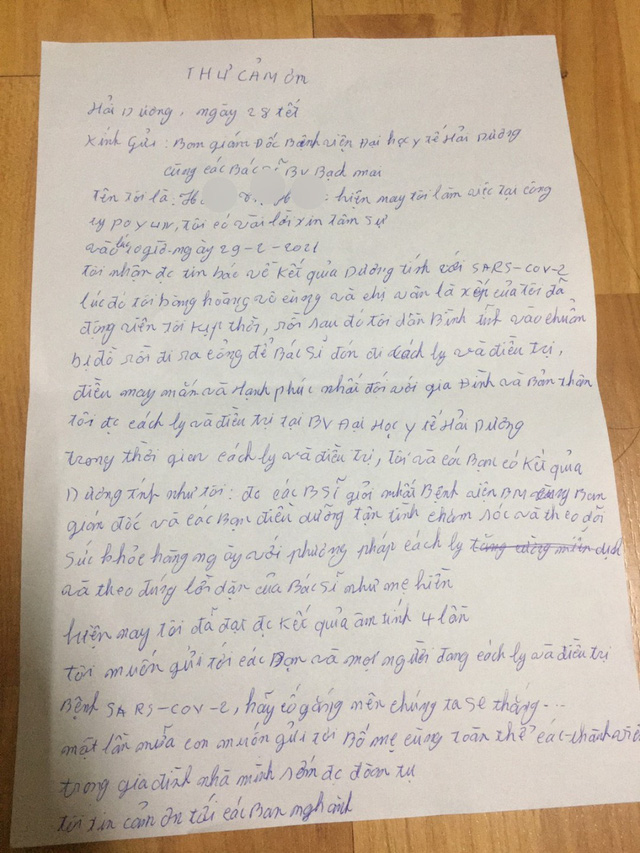 THƯ CẢM ƠN
Hải Dương, ngày 28 tết
Kính Gửi: Ban giám Đốc Bệnh viện Đại học y tế Hải Dương
cùng các Bác BV Bạch mai
tên tôi là. hiện nay tôi làm việc tại công
ty POYUN, tôi có vài lời xin tâm sự
vào lúc 10giờ ngày 29-2-2021
tôi nhận đc tin báo về Kết quả Dương tính với SARS-COV-2
lúc đó tôi bàng hoàng vô cùng và chị vân là xếp của tôi đã
động viên tôi kịp thời, rồi sau đó tôi dần Bình tĩnh vào chuẩn
bị đồ rồi đi ra cổng để Bác Sĩ đón đi cách ly và điều trị,
điều may mắn và Hạnh phúc nhất đối với gia Đình và Bản thân
tôi đc cách ly và điều trị tại BV Đại Học y tế Hải Dương
trong thời gian cách ly và điều trị, tôi và các Bạn có Kết quả
Dương tính như tôi: đc các BSĩ giỏi nhất Bệnh viện BM cùng Ban
gián đốc và các Bạn điều dưỡng tận tình chăm sóc và theo dõi
Sức khỏe hàng ngày với phương pháp cách ly dịch
và theo đúng lời dặn của Bác Sĩ như mẹ hiền
hiện nay tôi đã đạt đc Kết quả âm tính 4 lần
tôi muốn gửi tới các Bạn và mọi người đang cách ly và điều trị
Bệnh SARS-COV-2, hãy cố gắng nên chúng ta sẽ thắng...
một lần nữa con muốn gửi tới Bố mẹ cùng toàn thể các thành viên
trong gia đình nhà mình sớm đc đoàn tụ
tôi xin cảm ơn tới các Ban nghành